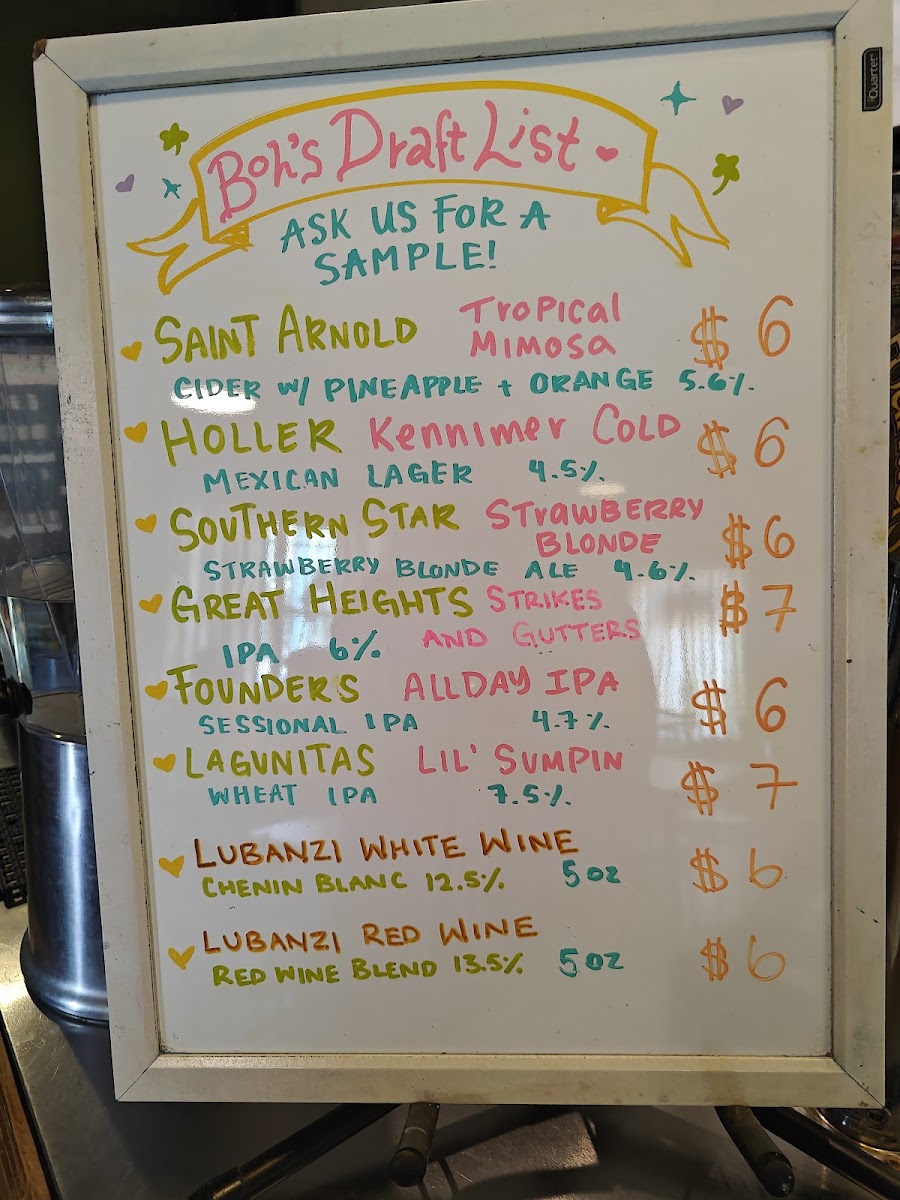 Quartet
Boh's Draft List
ASK US FOR A
SAMPLE!
SAINT ARNOLD Tropical $6
Mimosa
CIDER W/ PINEAPPLE + ORANGE 5.6%
HOLLER Kennimer COLD $6
MEXICAN LAGER 4.5%
SOUTHERN STAR STrawBERRY $6
BLONDE
STRAWBERRY BLONDE ALE 4.6%
GREAT HEIGHTS STRIKES $7
IPA 6% AND GUTTERS
FOUNDERS ALLDAY IPA $6
SESSIONAL IPA 4.7%
LAGUNITAS LIL' SUMPIN $7
WHEAT IPA 7.5%
LUBANZI WHITE WINE $6
CHENIN BLANC 12.5% 5oz
LUBANZI RED WINE
RED WINE BLEND 13.5% 5oz $6